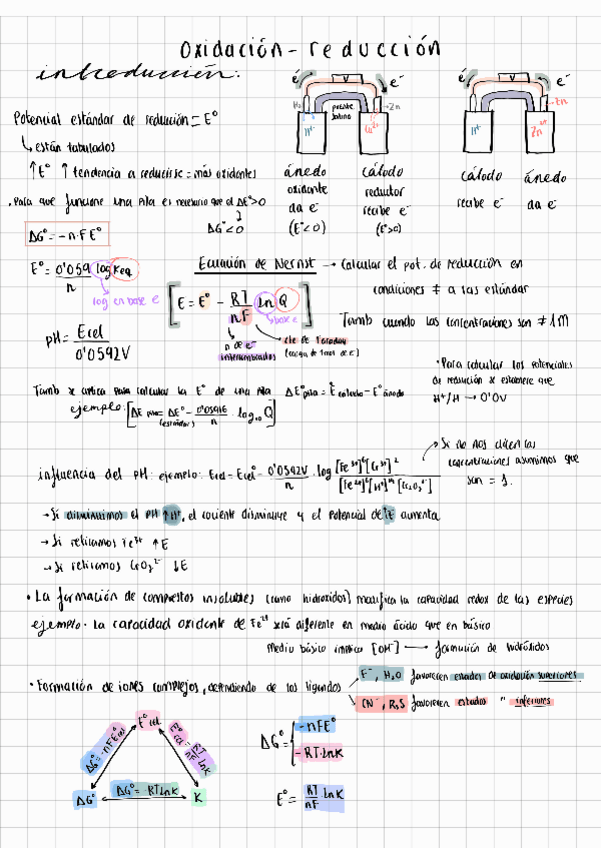 Oxidación - reducción
introducción:
Potencial estándar de reducción = E°
↳ están tabulados
↑E° ↑ tendencia a reducirse = más oxidantes
. Para que funcione una pila es necesario que el ΔE°>0
ΔG°<0
ΔG° = -n·F E°
é V e⁻
H₂ puente salino Zn
H⁺
ánodo cátodo
oxidante reductor
da e⁻ recibe e⁻
(E°<0) (E°>0)
é V e⁻
Zn
H⁺ Zn²⁺
cátodo ánodo
recibe e⁻ da e⁻
E° = 0'059/n log Keq
log en base e
pH = Ecel / 0'0592V
Ecuación de Nernst → calcular el pot. de reducción en
condiciones ≠ a las estándar
[E = E° - RT/nF Ln Q]
base e
Tamb cuando las concentraciones son ≠ 1M
n de e⁻ intercambiados
cte de Faraday
Tamb se aplica para calcular la E° de una pila ΔE°pila = E°cátodo - E°ánodo
ejemplo: [ΔE pila = ΔE° - 0'05916/n · log₁₀ Q]
(estándar)
· Para calcular los potenciales
de reducción se establece que
H⁺/H → 0'0V
influencia del pH: ejemplo: Ecel = Ecel° - 0'0592V/n · log [Fe³⁺]⁶[Cr³⁺]² / [Fe²⁺]⁶[H⁺]¹⁴[Cr₂O₇²⁻]
Si no nos dicen las
concentraciones asumimos que
son = 1.
→ Si disminuimos el pH ↑H⁺, el cociente disminuye y el potencial de ↑E aumenta
→ Si retiramos Fe³⁺ ↑E
→ Si retiramos CrO₇²⁻ ↓E
· La formación de compuestos insolubles (como hidróxidos) modifica la capacidad redox de las especies
ejemplo. La capacidad oxidante de Fe²⁺ será diferente en medio ácido que en básico
medio básico implica [OH⁻] → formación de hidróxidos
· Formación de iones complejos, dependiendo de los ligandos
F⁻, H₂O favorecen estados de oxidación superiores
CN⁻, R₂S favorecen estados " inferiores
E° cel
ΔG° = -nFE°cel
E°cel = RT/nF LnK
ΔG° ΔG° = -RTLnK K
ΔG° = { -nFE°
-RT·LnK
E° = RT/nF LnK